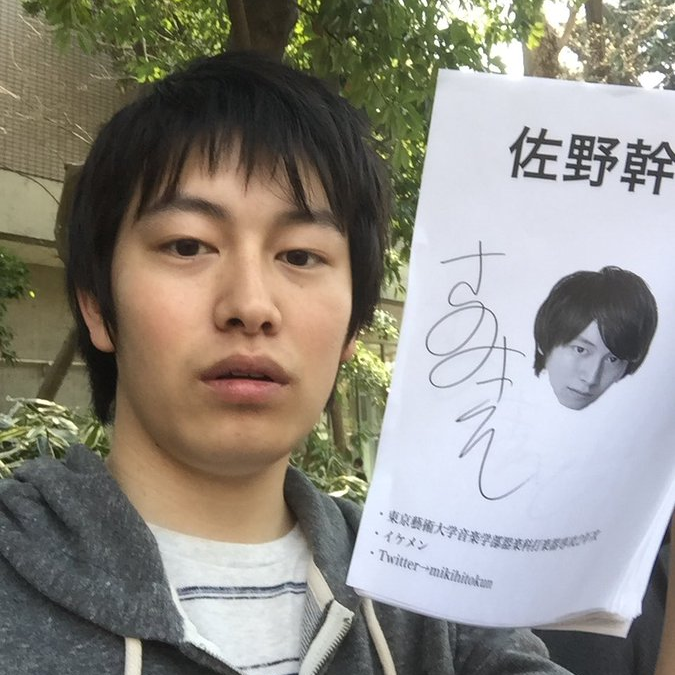 佐野幹
さのみき
・東京藝術大学音楽学部器楽科打楽器専攻2年次
・イケメン
・Twitter→mikihitokun